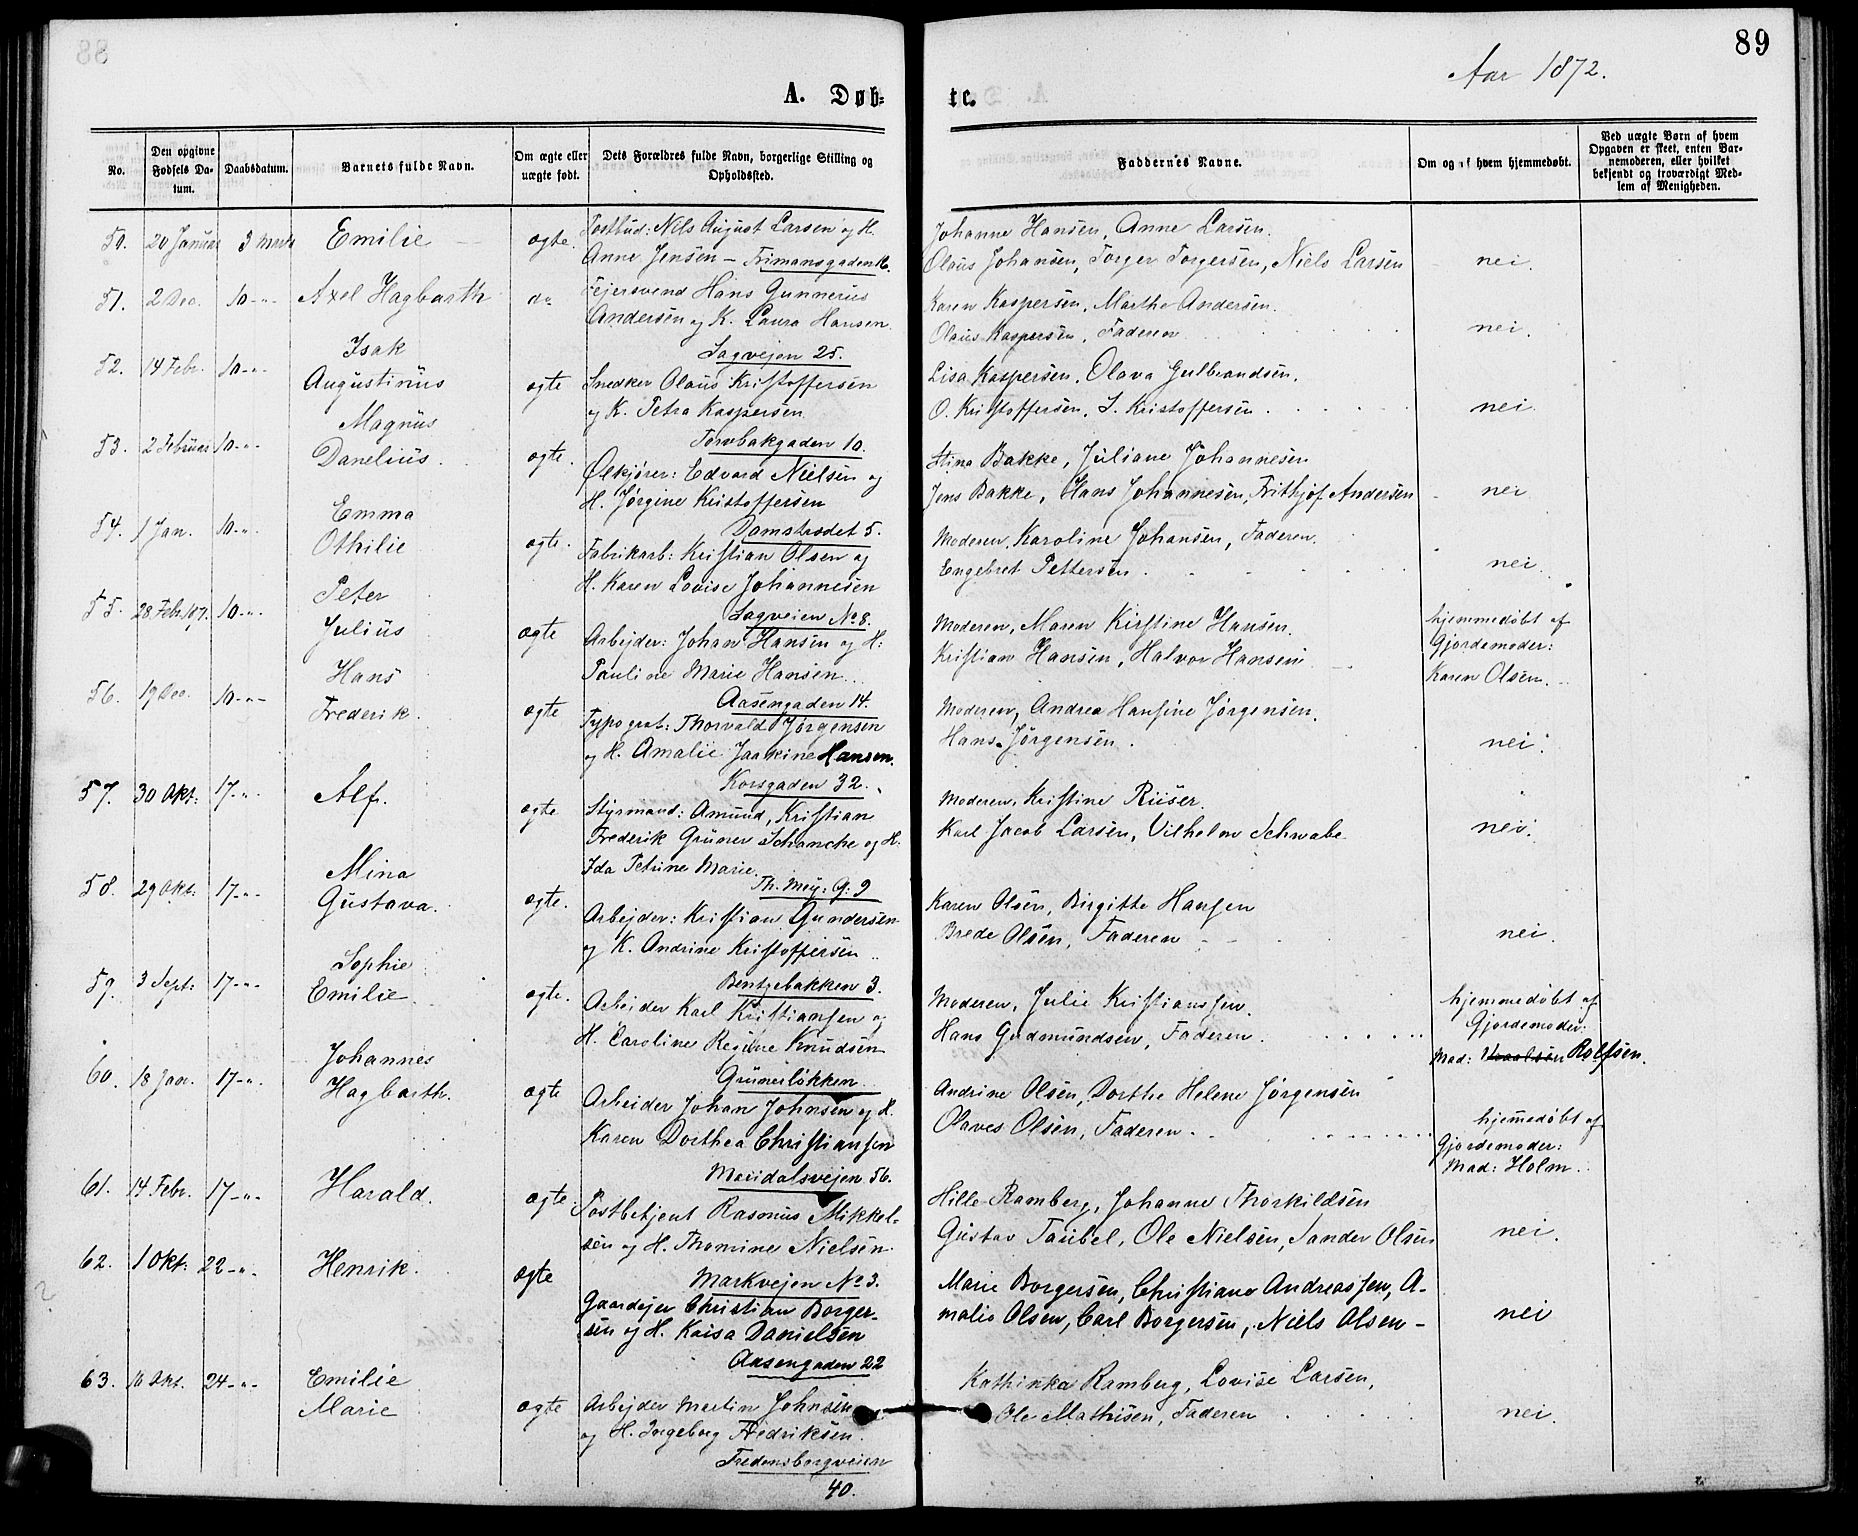 88
89
Aar 1872.
A. Døb-
te.
No.
Den opgivne Fødsels Da-
tum.
Daabsdatum.
Barnets fulde Navn.
Om ægte eller
uægte født.
Dets Forældres fulde Navn, borgerlige Stilling og
Opholdssted.
Faddernes Navne.
Om og af hvem hjemmedøbt.
Ved uægte Børn af hvem
Opgaven er skeet, enten Bar-
nemoderen, eller hvilket
bekjendt og troværdigt Med-
lem af Menigheden.
50. 20 Januar 3 Marts Emilie ægte. Postbud: Nils August Larsen og H.
Anne Jensen – Frimansgaden 16.
Johanne Hansen, Anne Larsen.
Olaus Johansen, Torger Torgersen, Niels Larsen nei.
51. 2 Dec. 10 -"- Axel Hagbarth do Fejersvend Hans Gunnerius
Andersen og K. Laura Hansen.
Sagvejen 25.
Karen Kaspersen, Marthe Andersen.
Olaus Kaspersen, Faderen nei.
52. 14 Febr. 10 -"- Isak
Augustinus ægte Snedker Olaus Kristoffersen
og K. Petra Kaspersen
Torvbakgaden 10.
Lisa Kaspersen, Olava Gulbrandsen.
O. Kristoffersen, S. Kristoffersen. nei.
53. 2 Februar 10 -"- Magnus
Danelius. ægte. Ølkjører: Edvard Nielsen og
H. Jørgine Kristoffersen
Damstredet 5.
Stina Bakke, Juliane Johannesen
Jens Bakke, Hans Johannesen, Frithjof Andersen nei
54. 1 Jan. 10 -"- Emma
Othilie ægte. Fabrikarb: Kristian Olsen og
H. Karen Lovise Johannesen
Sagveien No 8.
Moderen, Karoline Johansen, Faderen.
Engebret Pettersen. nei.
55. 28 Febr. 187. 10 -"- Peter
Julius ægte Arbejder: Johan Hansen og H:
Pauline Marie Hansen.
Aasengaden 14.
Moderen, Maren Kirstine Hansen.
Kristian Hansen, Halvor Hansen
hjemmedøbt af
Gjordemoder:
Karen Olsen.
56. 19 Dec. 10 -"- Hans
Frederik. ægte Typograf: Thorvald Jørgensen
og H. Amalie Jaakine Hansen.
Korsgaden 32.
Moderen, Andrea Hansine Jørgensen.
Hans Jørgensen. nei.
57. 30 Okt: 17 -"- Alf. ægte Styrmand: Amund, Kristian
Frederik Grüner Schanche og H.
Ida Petrine Marie.
Th. Mey: G: 9
Moderen, Kristine Riiser.
Karl Jacob Larsen, Vilhelm Schwabe nei.
58. 29 Okt: 17 -"- Mina
Gustava. ægte. Arbejder: Kristian Gundersen
og K. Andrine Kristoffersen
Bentzebakken 3.
Karen Olsen, Birgitte Hansen
Brede Olsen, Faderen nei.
59. 3 Sept: 17 -"- Sophie
Emilie. ægte. Arbeider Karl Kristiansen og
H. Caroline Regine Knudsen
Grünerløkken
Moderen, Julie Kristianssen.
Hans Gudmundsen, Faderen.
hjemmedøbt af
Gjordemoder:
Mad: Rolfsen.
60. 18 Jan. 17 -"- Johannes
Hagbarth. ægte Arbeider Johan Johnsen og H.
Karen Dorthea Christiansen
Maridalsvejen 56.
Andrine Olsen, Dorthe Helene Jørgensen
Olaves Olsen, Faderen.
hjemmedøbt af
Gjordemoder:
Mad: Holm.
61. 14 Febr. 17 -"- Harald. ægte. Postbetjent Rasmus Mikkel-
sen og H. Thomine Nielsen.
Markvejen No 3.
Hille Ramberg, Johanne Thorkildsen
Gustav Taubel, Ole Nielsen, Sander Olsen nei.
62. 1 Okt: 22 -"- Henrik. ægte Gaardejer Christian Borger-
sen og H. Kaisa Danielsen
Aasengaden 22
Marie Borgersen, Christiane Andreassen, A-
malie Olsen, Carl Borgersen, Niels Olsen – nei
63. 16 Okt. 24 -"- Emilie
Marie ægte Arbejder Martin Johnsen
og H. Ingeborg Fredriksen.
Fredensborgveien
40.
Kathinka Ramberg, Lovise Larsen,
Ole Mathisen, Faderen nei.